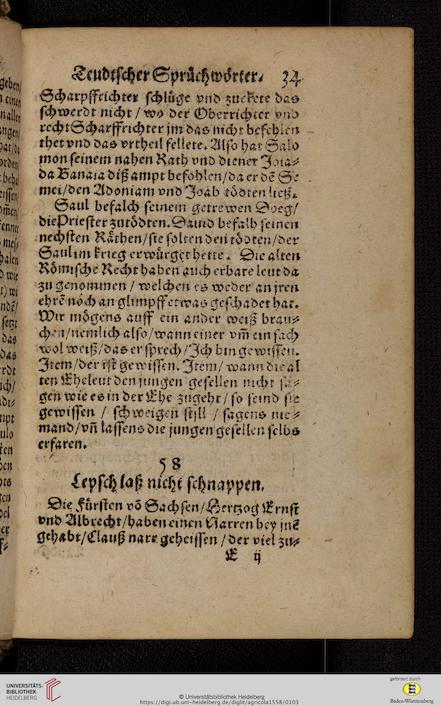 Teudtscher Sprüchwörter. 34
Scharpffrichter schlüge vnd zuckete das
schwerdt nicht / wo der Oberrichter vnd
recht Scharffrichter jm das nicht befehlen
thet vnd das vrtheil fellete. Also hat Salo
mon seinem nahen Rath vnd diener Joia-
da Banaia diß ampt befohlen / da er dē Se
mei / den Adoniam vnd Joab tödten ließ.
Saul befalch seinem getrewen Doeg /
die Priester zutödten. Dauid befalh seinen
nechsten Räthen / sie solten den tödten / der
Saul im krieg erwürget hette. Die alten
Römische Recht haben auch erbare leut da
zu genommen / welchen es weder an jren
ehrē noch an glimpff etwas geschadet hat.
Wir mögens auff ein ander weiß brau-
chen / nemlich also / wann einer vm̃ ein sach
wol weiß / das er sprech / Jch bin gewissen.
Jtem / der ist gewissen. Jtem / wann die al
ten Eheleut den jungen gesellen nicht sa-
gen wie es in der Ehe zugeht / so seind sie
gewissen / schweigen still / sagens nie-
mand / vñ lassens die jungen gesellen selbs
erfaren.
58
Lepsch laß nicht schnappen.
Die Fürsten vō Sachsen / Hertzog Ernst
vnd Albrecht / haben einen Narren bey jnē
gehabt / Clauß narr geheissen / der viel zu-
E ij
UNIVERSITÄTS-
BIBLIOTHEK
HEIDELBERG
© Universitätsbibliothek Heidelberg
https://digi.ub.uni-heidelberg.de/diglit/agricola1558/0103
gefördert durch
Baden-Württemberg